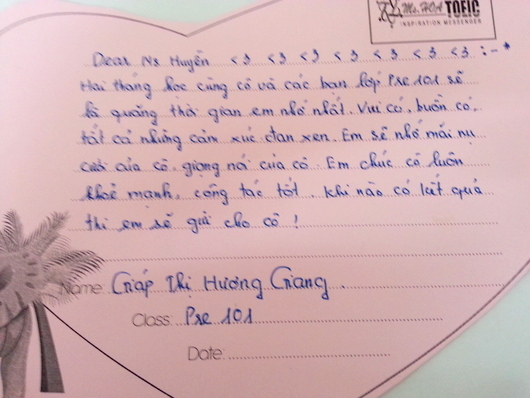 Ms. HOA TOEIC
INSPIRATION MESSENGER
Dear Ms Huyền <3 <3 <3 <3 <3 <3 <3 :-*
Hai tháng học cùng cô và các bạn lớp Pre 101 sẽ
là quãng thời gian em nhớ nhất. Vui có, buồn có,
tất cả những cảm xúc đan xen. Em sẽ nhớ mãi nụ
cười của cô, giọng nói của cô. Em chúc cô luôn
khoẻ mạnh, công tác tốt. Khi nào có kết quả
thi em sẽ gửi cho cô !
Name: Giáp Thị Hương Giang.
Class: Pre 101
Date: